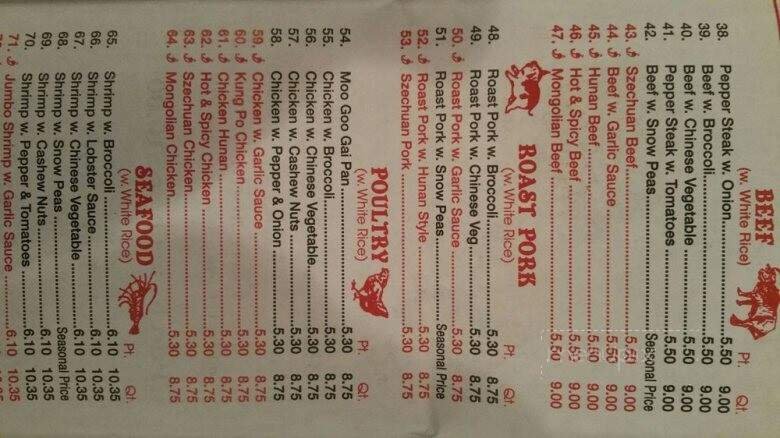 BEEF
(w. White Rice) Pt. Qt.
38. Pepper Steak w. Onion 5.50 9.00
39. Beef w. Broccoli 5.50 9.00
40. Beef w. Chinese Vegetable 5.50 9.00
41. Pepper Steak w. Tomatoes 5.50 9.00
42. Beef w. Snow Peas Seasonal Price
43. Szechuan Beef 5.50 9.00
44. Beef w. Garlic Sauce 5.50 9.00
45. Hunan Beef 5.50 9.00
46. Hot & Spicy Beef 5.50 9.00
47. Mongolian Beef 5.50 9.00
ROAST PORK
(w. White Rice) Pt. Qt.
48. Roast Pork w. Broccoli 5.30 8.75
49. Roast Pork w. Chinese Veg. 5.30 8.75
50. Roast Pork w. Garlic Sauce 5.30 8.75
51. Roast Pork w. Snow Peas Seasonal Price
52. Roast Pork w. Hunan Style 5.30 8.75
53. Szechuan Pork 5.30 8.75
POULTRY
(w. White Rice) Pt. Qt.
54. Moo Goo Gai Pan 5.30 8.75
55. Chicken w. Broccoli 5.30 8.75
56. Chicken w. Chinese Vegetable 5.30 8.75
57. Chicken w. Cashew Nuts 5.30 8.75
58. Chicken w. Pepper & Onion 5.30 8.75
59. Chicken w. Garlic Sauce 5.30 8.75
60. Kung Po Chicken 5.30 8.75
61. Chicken Hunan 5.30 8.75
62. Hot & Spicy Chicken 5.30 8.75
63. Szechuan Chicken 5.30 8.75
64. Mongolian Chicken 5.30 8.75
SEAFOOD
(w. White Rice) Pt. Qt.
65. Shrimp w. Broccoli 6.10 10.35
66. Shrimp w. Lobster Sauce 6.10 10.35
67. Shrimp w. Chinese Vegetable 6.10 10.35
68. Shrimp w. Snow Peas Seasonal Price
69. Shrimp w. Cashew Nuts 6.10 10.35
70. Shrimp w. Pepper & Tomatoes 6.10 10.35
71. Jumbo Shrimp w. Garlic Sauce 6.10 10.35